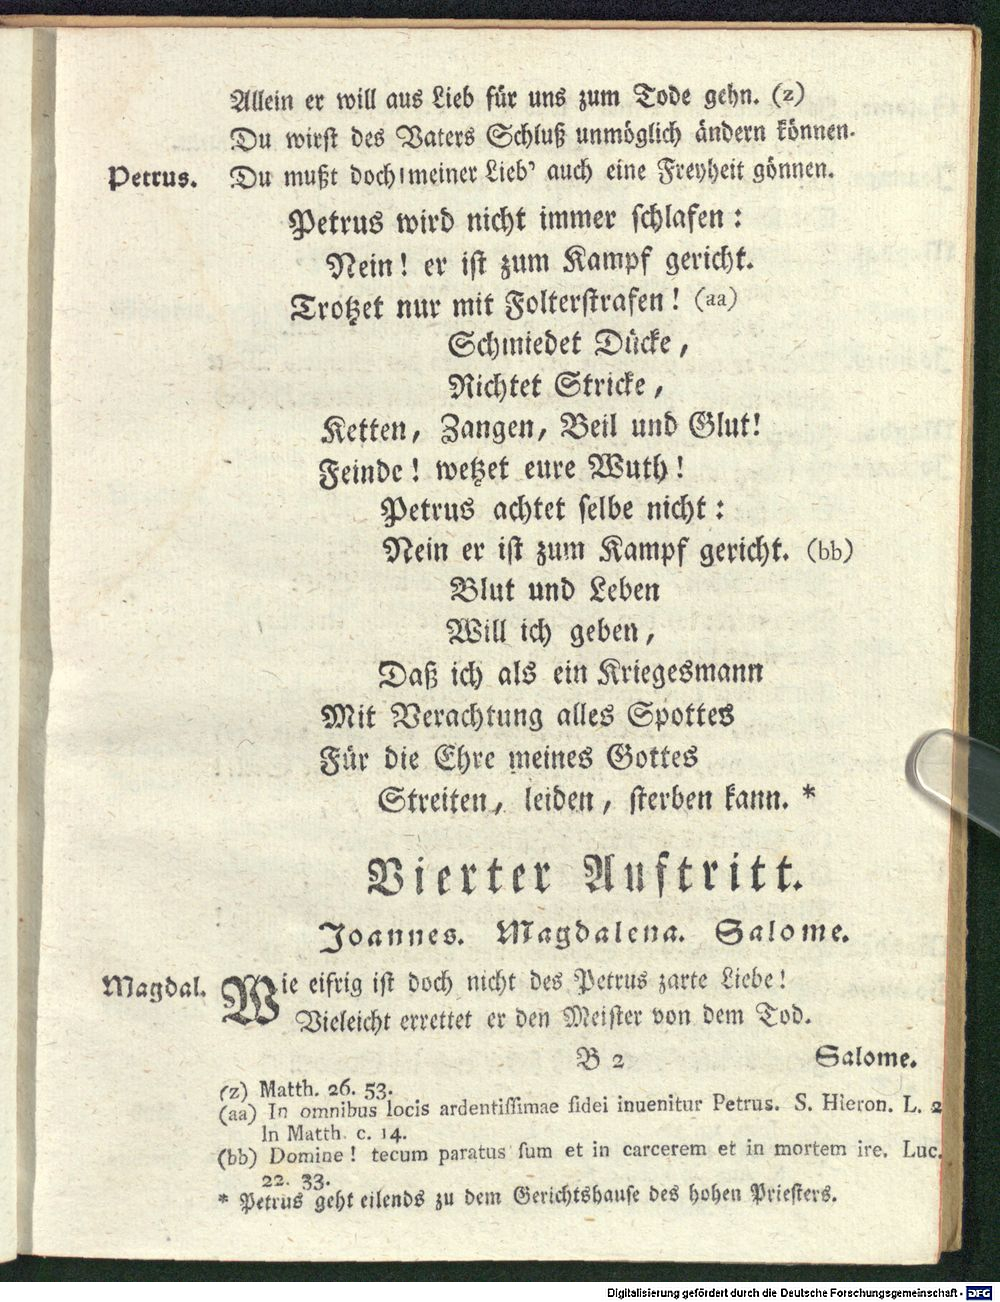 Allein er will aus Lieb für uns zum Tode gehn. (z)
Du wirst des Vaters Schluß unmöglich ändern können.
Petrus. Du mußt doch meiner Lieb' auch eine Freyheit gönnen.
Petrus wird nicht immer schlafen:
Nein! er ist zum Kampf gericht.
Trotzet nur mit Folterstrafen! (aa)
Schmiedet Dücke,
Richtet Stricke,
Ketten, Zangen, Beil und Glut!
Feinde! wetzet eure Wuth!
Petrus achtet selbe nicht:
Nein er ist zum Kampf gericht. (bb)
Blut und Leben
Will ich geben,
Daß ich als ein Kriegesmann
Mit Verachtung alles Spottes
Für die Ehre meines Gottes
Streiten, leiden, sterben kann. *
Vierter Auftritt.
Joannes. Magdalena. Salome.
Magdal. Wie eifrig ist doch nicht des Petrus zarte Liebe!
Vieleicht errettet er den Meister von dem Tod.
B 2 Salome.
(z) Matth. 26. 53.
(aa) In omnibus locis ardentissimae fidei inuenitur Petrus. S. Hieron. L. 2
In Matth. c. 14.
(bb) Domine! tecum paratus sum et in carcerem et in mortem ire. Luc.
22. 33.
* Petrus geht eilends zu dem Gerichtshause des hohen Priesters.
Digitalisierung gefördert durch die Deutsche Forschungsgemeinschaft - DFG